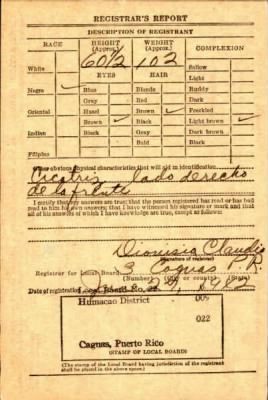 REGISTRAR'S REPORT
DESCRIPTION OF REGISTRANT
RACE HEIGHT (Approx.) WEIGHT (Approx.) COMPLEXION
60/2 102
White Sallow
EYES HAIR Light
Negro ✓ Blue Blonde Ruddy
Gray Red Dark
Oriental Hazel Brown ✓ Freckled
Brown ✓ Black Light brown ✓
Indian Black Gray Dark brown
Bald Black
Filipino
obvious physical characteristics that will aid in identification
Cicatriz lado derecho
de la frente
I certify that my answers are true; that the person registered has read or has had
read to him his own answers; that I have witnessed his signature or mark and that
all of his answers of which I have knowledge are true, except as follows:
Dionisio Claudio
(Signature of registrar)
Registrar for Local Board 3 Caguas P. R.
(Number) (City or county) (State)
Date of registration
Humacao District 009
022
Caguas, Puerto Rico
(STAMP OF LOCAL BOARD)
(The stamp of the Local Board having jurisdiction of the registrant
shall be placed in the above space.)